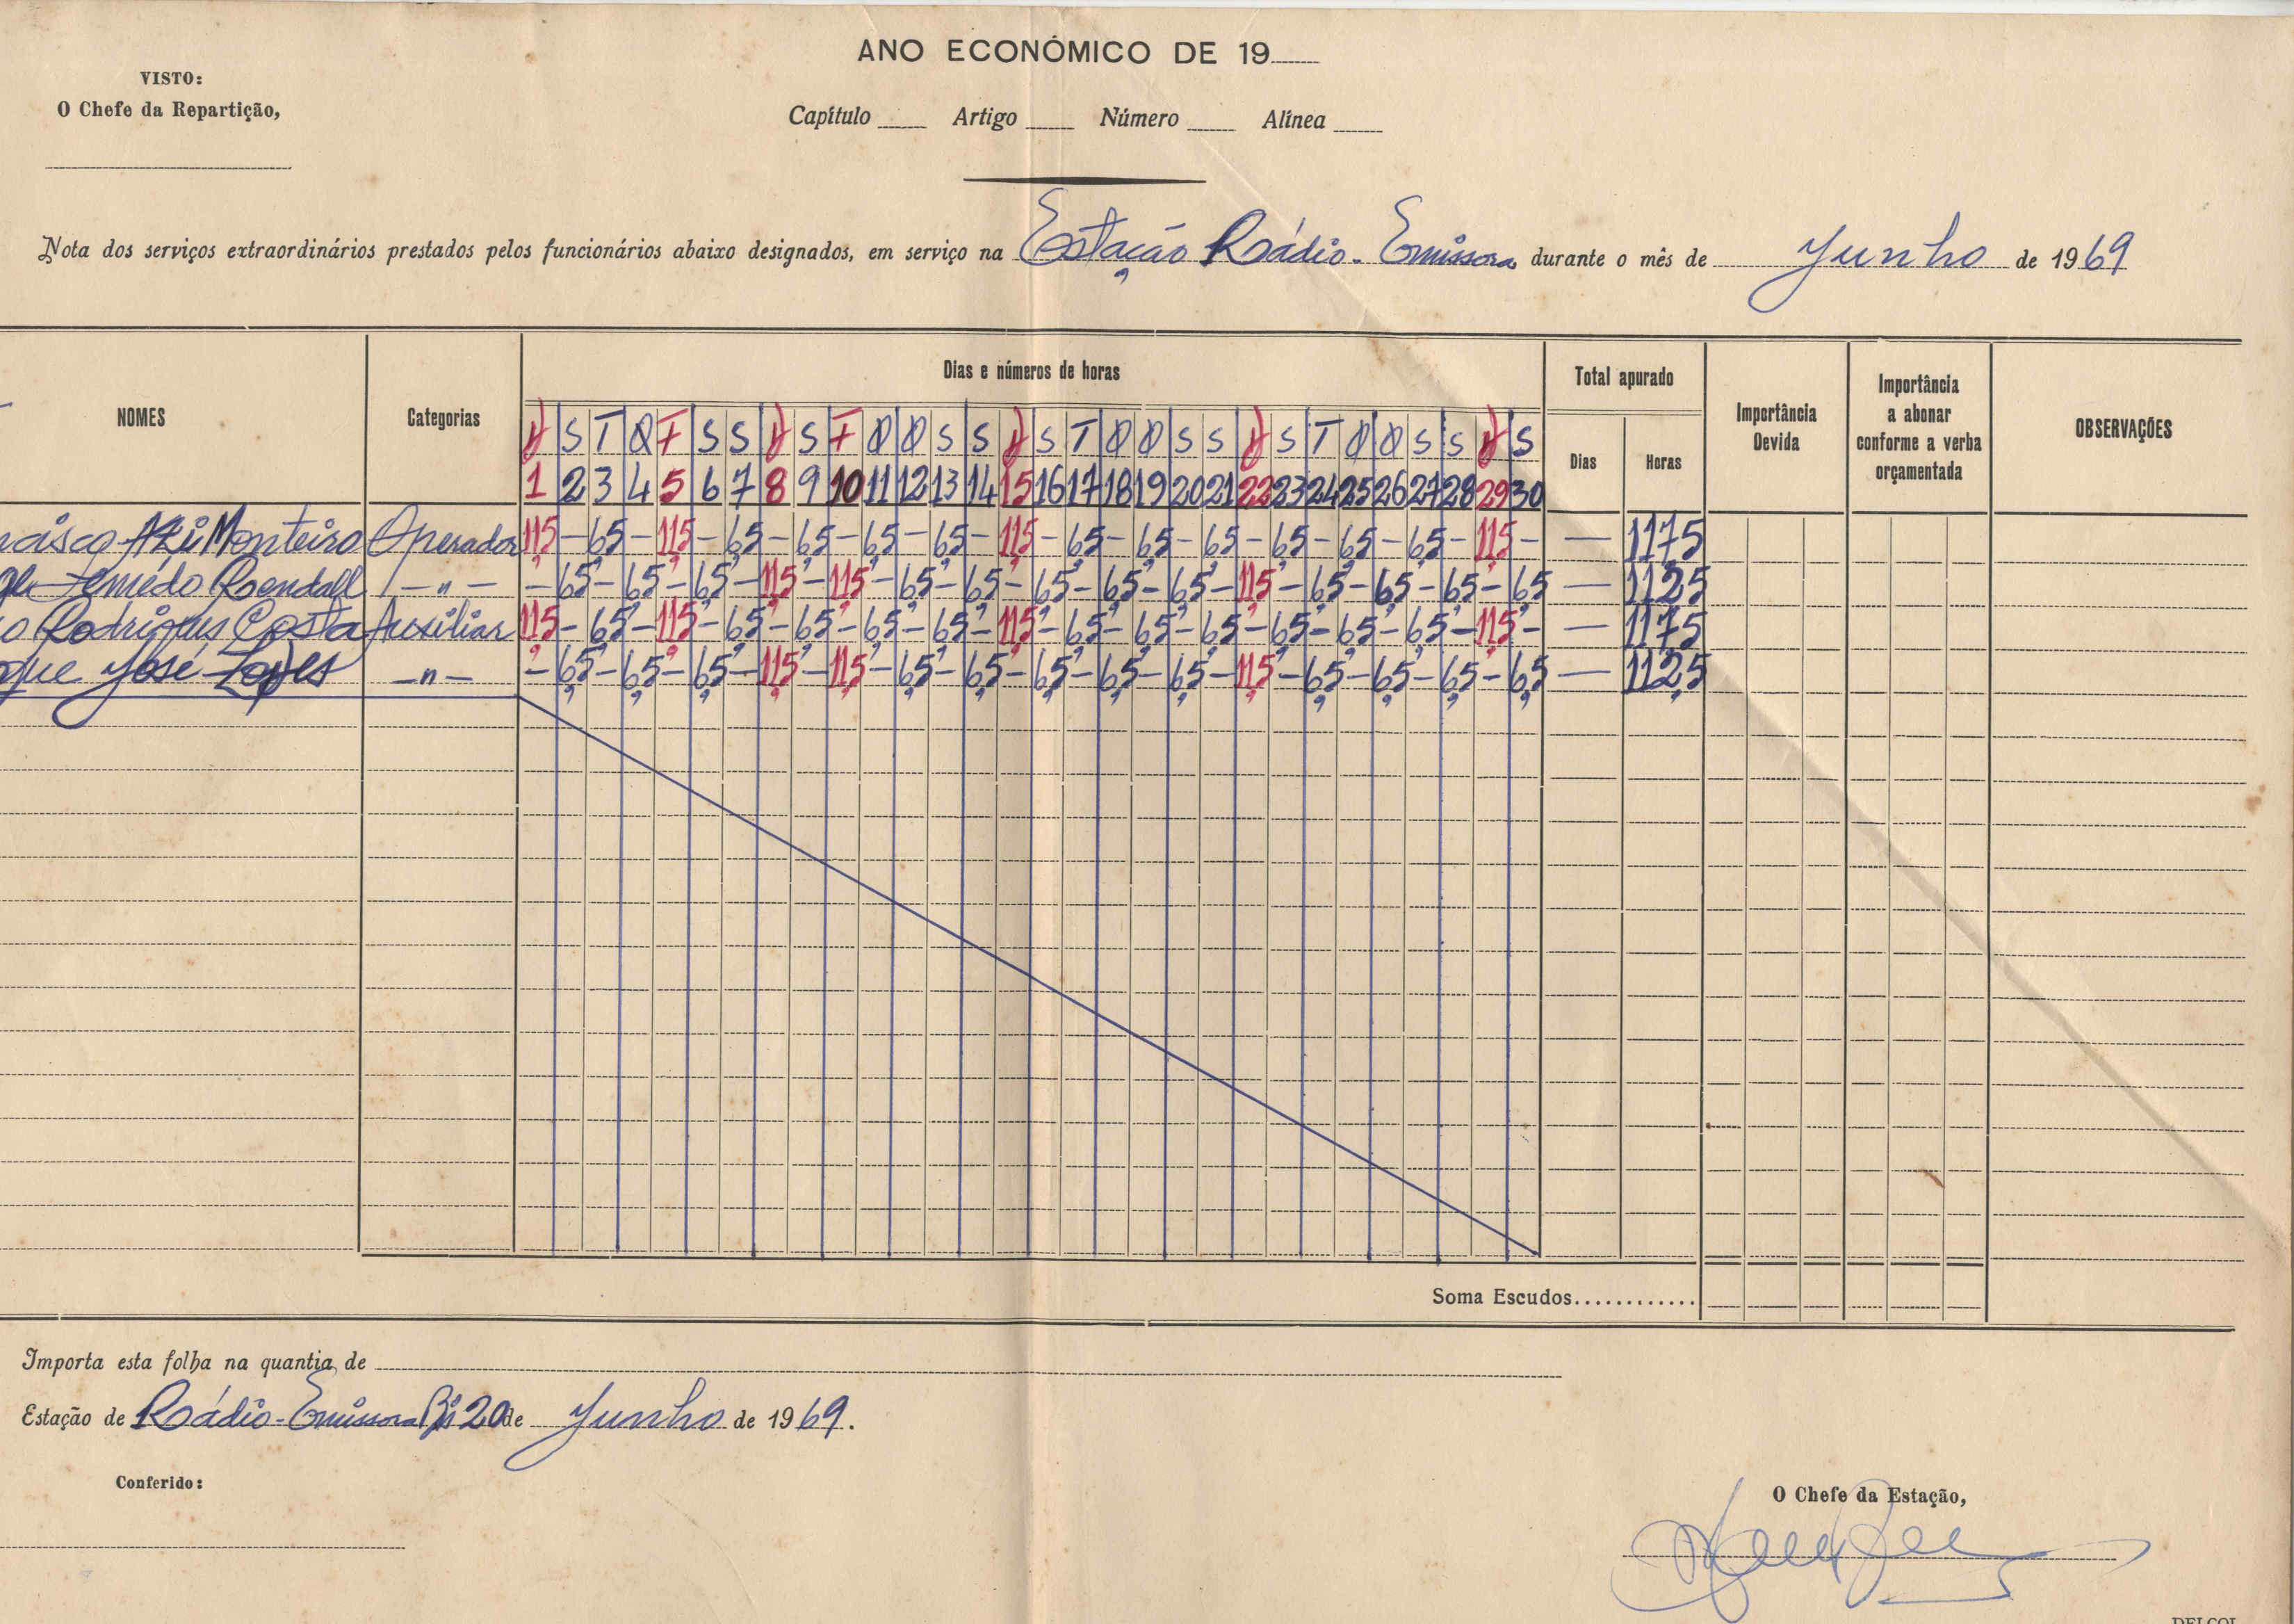 ANO ECONÓMICO DE 19
VISTO:
O Chefe da Repartição,
Capítulo Artigo Número Alínea
Nota dos serviços extraordinários prestados pelos funcionários abaixo designados, em serviço na Estação Rádio-Emissora durante o mês de Junho de 1969
NOMES Categorias Dias e números de horas Total apurado Importância Devida Importância a abonar conforme a verba orçamentada OBSERVAÇÕES
Dias Horas
D S T Q F S S D S F Q Q S S D S T Q Q S S D S T Q Q S S D S
1 2 3 4 5 6 7 8 9 10 11 12 13 14 15 16 17 18 19 20 21 22 23 24 25 26 27 28 29 30
Monteiro Operador 11,5 - 6,5 - 11,5 - 6,5 - 6,5 - 6,5 - 6,5 - 11,5 - 6,5 - 6,5 - 6,5 - 6,5 - 6,5 - 6,5 - 11,5 - — 117,5
Rendall -"- - 6,5 - 6,5 - 6,5 - 11,5 - 11,5 - 6,5 - 6,5 - 6,5 - 6,5 - 6,5 - 11,5 - 6,5 - 6,5 - 6,5 - 6,5 — 112,5
o Rodrigues Costa Auxiliar 11,5 - 6,5 - 11,5 - 6,5 - 6,5 - 6,5 - 6,5 - 11,5 - 6,5 - 6,5 - 6,5 - 6,5 - 6,5 - 6,5 - 11,5 - — 117,5
que José Lopes -"- - 6,5 - 6,5 - 6,5 - 11,5 - 11,5 - 6,5 - 6,5 - 6,5 - 6,5 - 6,5 - 11,5 - 6,5 - 6,5 - 6,5 - 6,5 — 112,5
Soma Escudos............
Importa esta folha na quantia de
Estação de Rádio-Emissora 20 de Junho de 1969.
Conferido:
O Chefe da Estação,